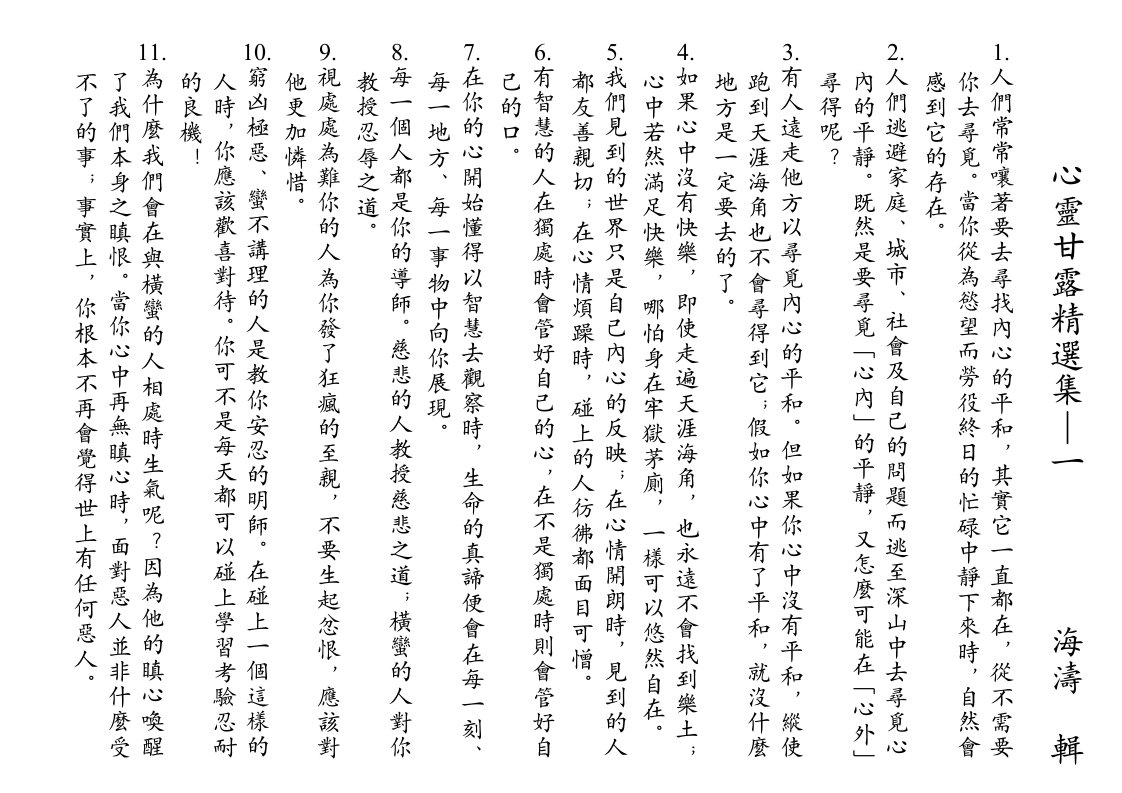 心靈甘露精選集—一　　　海濤　輯
1.人們常常嚷著要去尋找內心的平和，其實它一直都在，從不需要
你去尋覓。當你從為慾望而勞役終日的忙碌中靜下來時，自然會
感到它的存在。
2.人們逃避家庭、城市、社會及自己的問題而逃至深山中去尋覓心
內的平靜。既然是要尋覓「心內」的平靜，又怎麼可能在「心外」
尋得呢？
3.有人遠走他方以尋覓內心的平和。但如果你心中沒有平和，縱使
跑到天涯海角也不會尋得到它；假如你心中有了平和，就沒什麼
地方是一定要去的了。
4.如果心中沒有快樂，即使走遍天涯海角，也永遠不會找到樂土；
心中若然滿足快樂，哪怕身在牢獄茅廁，一樣可以悠然自在。
5.我們見到的世界只是自己內心的反映；在心情開朗時，見到的人
都友善親切；在心情煩躁時，碰上的人彷彿都面目可憎。
6.有智慧的人在獨處時會管好自己的心，在不是獨處時則會管好自
己的口。
7.在你的心開始懂得以智慧去觀察時，生命的真諦便會在每一刻、
每一地方、每一事物中向你展現。
8.每一個人都是你的導師。慈悲的人教授慈悲之道；橫蠻的人對你
教授忍辱之道。
9.視處處為難你的人為你發了狂瘋的至親，不要生起忿恨，應該對
他更加憐惜。
10.窮凶極惡、蠻不講理的人是教你安忍的明師。在碰上一個這樣的
人時，你應該歡喜對待。你可不是每天都可以碰上學習考驗忍耐
的良機！
11.為什麼我們會在與橫蠻的人相處時生氣呢？因為他的瞋心喚醒
了我們本身之瞋恨。當你心中再無瞋心時，面對惡人並非什麼受
不了的事；事實上，你根本不再會覺得世上有任何惡人。